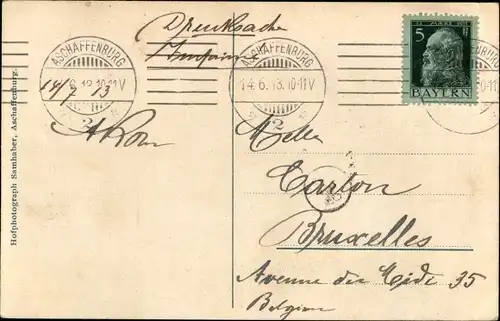 Drucksache
ASCHAFFENBURG
14.6.13.10-11V
2
ASCHAFFENBURG
14.6.13.10-11V
2
5
BAYERN
14/6 13
Hofphotograph Samhaber, Aschaffenburg.
Melle
Carton
Bruxelles
Avenue du Midi 35
Belgien